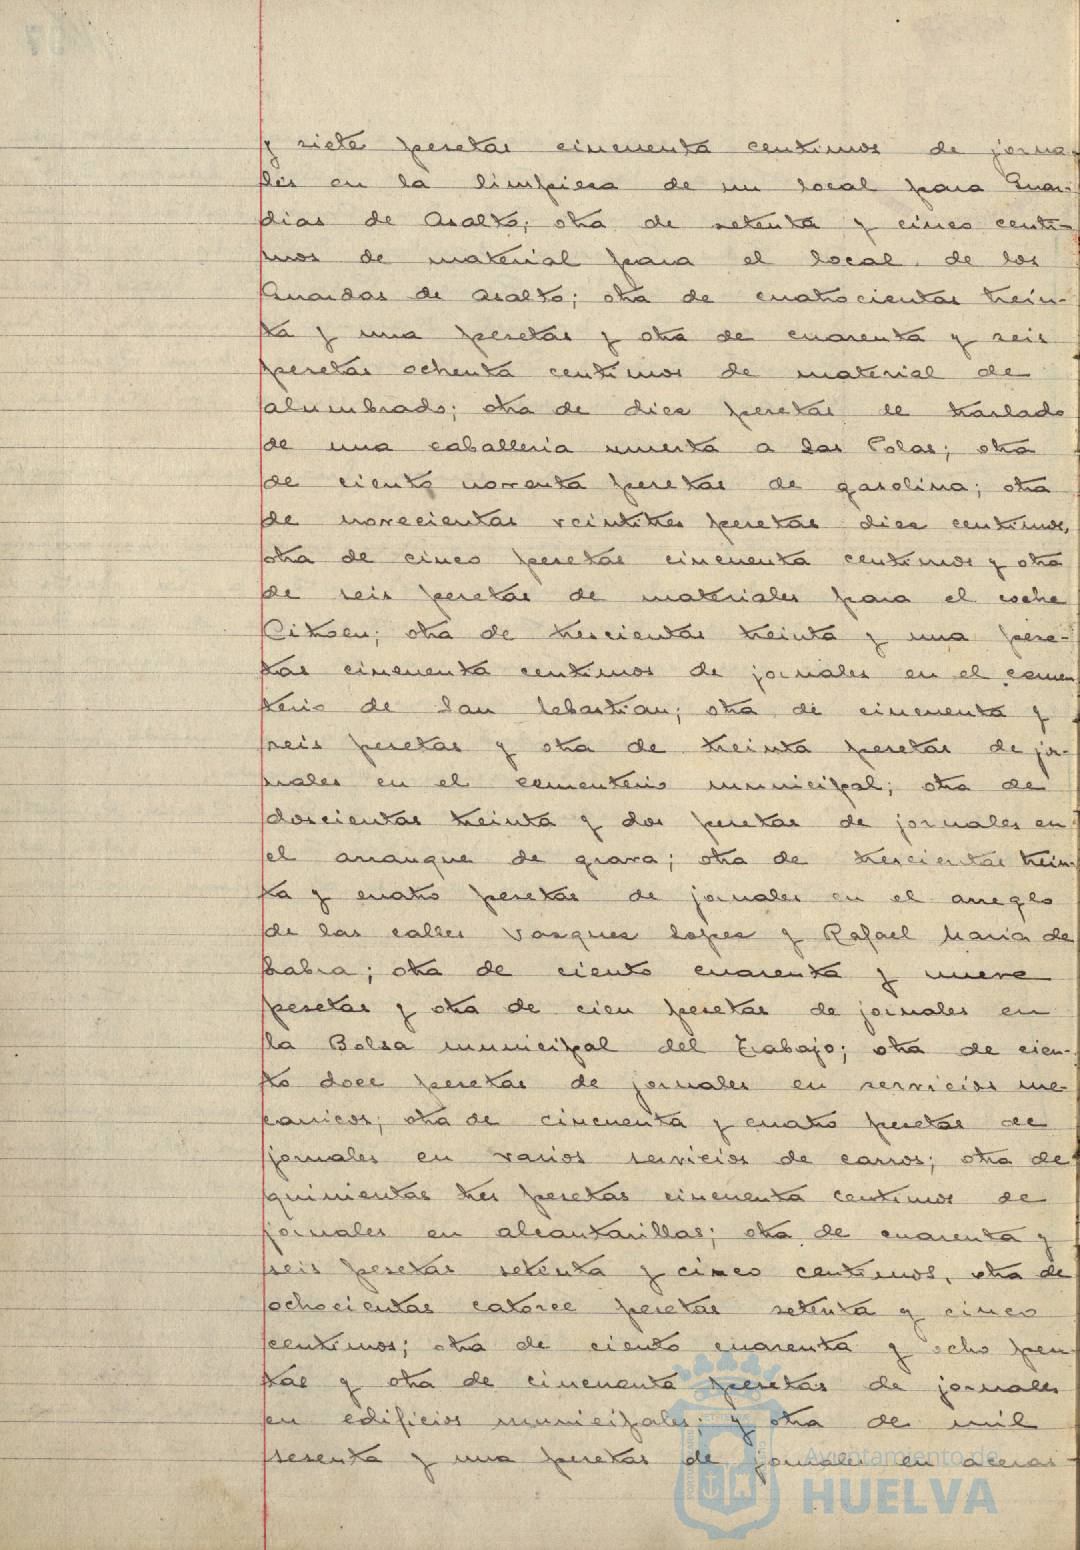 y siete pesetas cincuenta centimos de jorna-
les en la limpieza de un local para Guar-
dias de Asalto; otra de setenta y cinco centi-
mos de material para el local de los
Guardas de asalto; otra de cuatrocientas trein-
ta y una pesetas y otra de cuarenta y seis
pesetas ochenta centimos de material de
alumbrado; otra de diez pesetas de traslado
de una caballeria muerta a las Colas; otra
de ciento noventa pesetas de gasolina; otra
de novecientas veintitres pesetas diez centimos,
otra de cinco pesetas cincuenta centimos y otra
de seis pesetas de materiales para el coche
Citroen; otra de trescientas treinta y una pese-
tas cincuenta centimos de jornales en el cemen
terio de San Sebastian; otra de cincuenta y
seis pesetas y otra de treinta pesetas de jor-
nales en el cementerio municipal; otra de
doscientas treinta y dos pesetas de jornales en
el arranque de grava; otra de trescientas trein-
ta y cuatro pesetas de jornales en el arreglo
de las calles Vazquez Lopez y Rafael Maria de
Labra; otra de ciento cuarenta y nueve
pesetas y otra de cien pesetas de jornales en
la Bolsa municipal del Trabajo; otra de cien-
to doce pesetas de jornales en servicios me-
canicos; otra de cincuenta y cuatro pesetas de
jornales en varios servicios de carros; otra de
quinientas tres pesetas cincuenta centimos de
jornales en alcantarillas; otra de cuarenta y
seis pesetas setenta y cinco centimos, otra de
ochocientas catorce pesetas setenta y cinco
centimos; otra de ciento cuarenta y ocho pese
tas y otra de cincuenta pesetas de jornales
en edificios municipales; y otra de mil
sesenta y una pesetas de jornales en aceras-
Ayuntamiento de
HUELVA